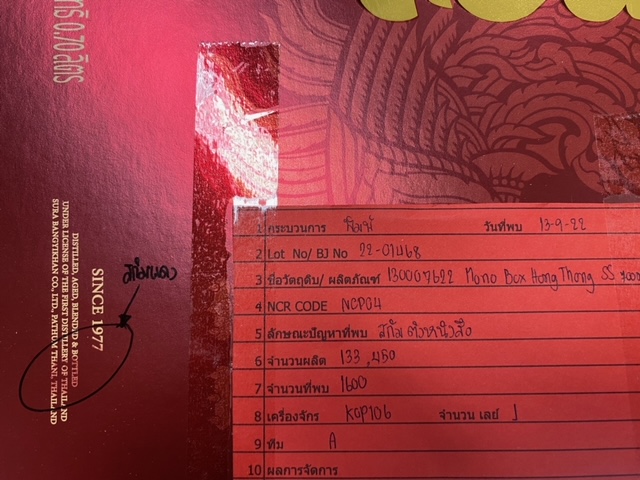 ทร์ 0.70 ลิตร
SINCE 1977
DISTILLED, AGED, BLENDED & BOTTLED
UNDER LICENSE OF THE FIRST DISTILLERY OF THAILAND
SURA BANGYIKHAN CO., LTD., PATHUM THANI, THAILAND
1 กระบวนการ พิมพ์ วันที่พบ 13-9-22
2 Lot No/ BJ No 22-01468
3 ชื่อวัตถุดิบ/ ผลิตภัณฑ์ 130007622 Mono Box Hong Thong SS 700
4 NCR CODE NCP04
5 ลักษณะปัญหาที่พบ สกัมตัวหนังสือ
6 จำนวนผลิต 133,450
7 จำนวนที่พบ 1600
8 เครื่องจักร KCP106 จำนวน เลย์ 1
9 ทีม A
10 ผลการจัดการ